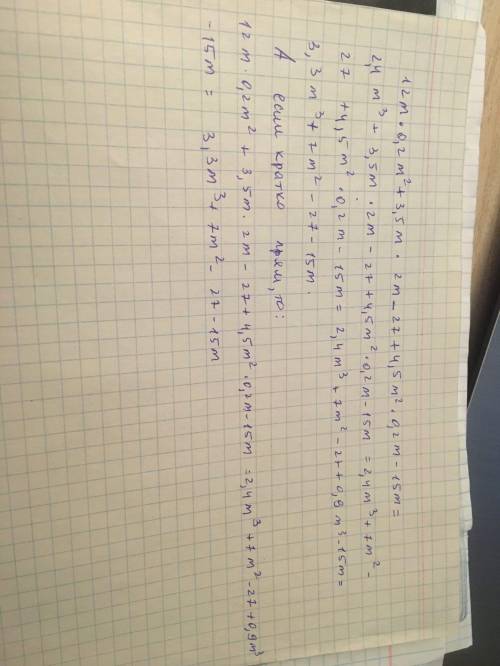 12m · 0,2m² + 3,5m · 2m - 27 + 4,5m² · 0,2m - 15m =
2,4m³ + 3,5m · 2m - 27 + 4,5m² · 0,2m - 15m = 2,4m³ + 7m² -
27 + 4,5m² · 0,2m - 15m = 2,4m³ + 7m² - 27 + 0,9m³ - 15m =
3,3m³ + 7m² - 27 - 15m.
А если кратко
12m · 0,2m² + 3,5m · 2m - 27 + 4,5m² · 0,2m - 15m = 2,4m³ + 7m² - 27 + 0,9m³
- 15m = 3,3m³ + 7m² - 27 - 15m